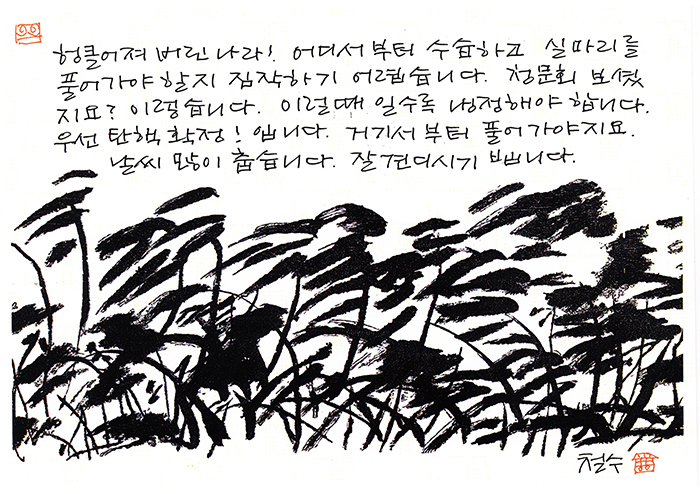 헝클어져 버린 나라! 어디서부터 수습하고 실마리를
풀어가야 할지 짐작하기 어렵습니다. 청문회 보셨
지요? 이렇습니다. 이럴때 일수록 냉정해야 합니다.
우선 탄핵 확정! 입니다. 거기서부터 풀어가야지요.
날씨 많이 춥습니다. 잘 견디시기 빕니다.
철수